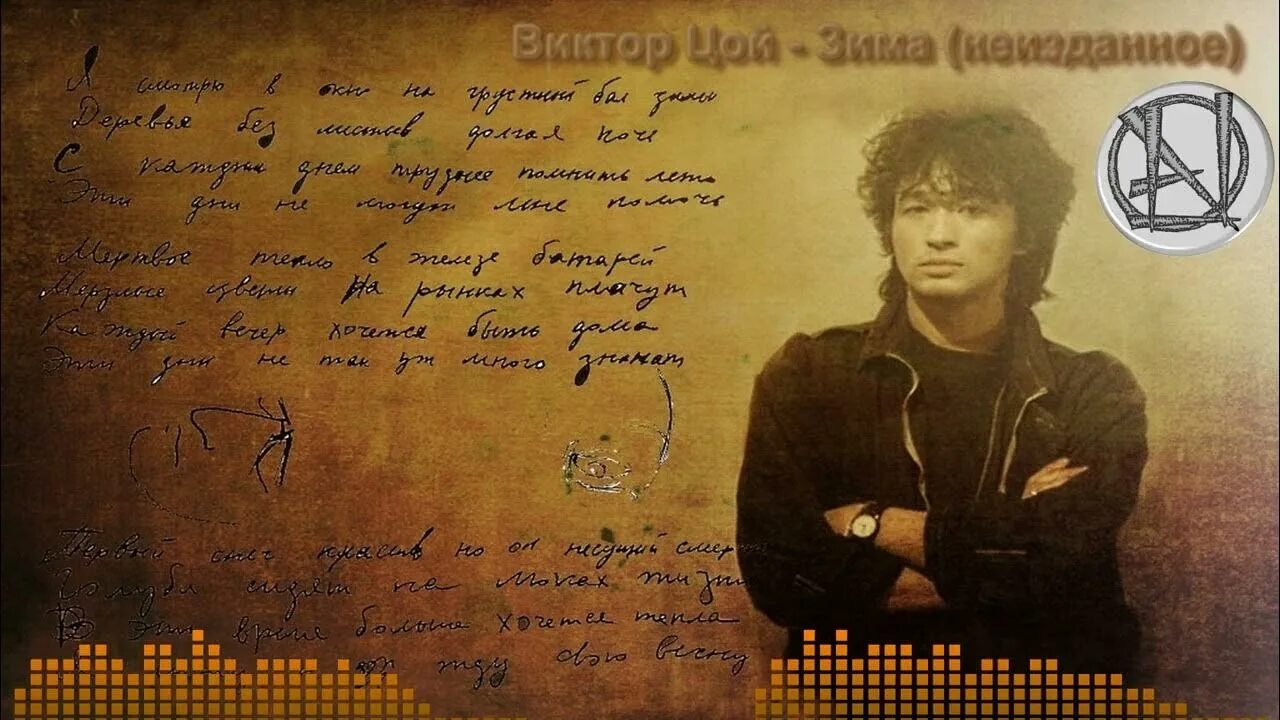 Виктор Цой - Зима (неизданное)
Я смотрю в окно на грустный бал зимы
Деревья без листьев долгая ночь
С каждым днем труднее помнить лето
Эти дни не могут мне помочь
Мертвое тепло в железе батарей
Мерзлые цветы на рынках плачут
Каждый вечер хочется быть дома
Эти дни не так уж много значат
Первый снег красив но он несущий смерть
Голуби сидят на люках жизни
В эти время больше хочется тепла
жду свою весну